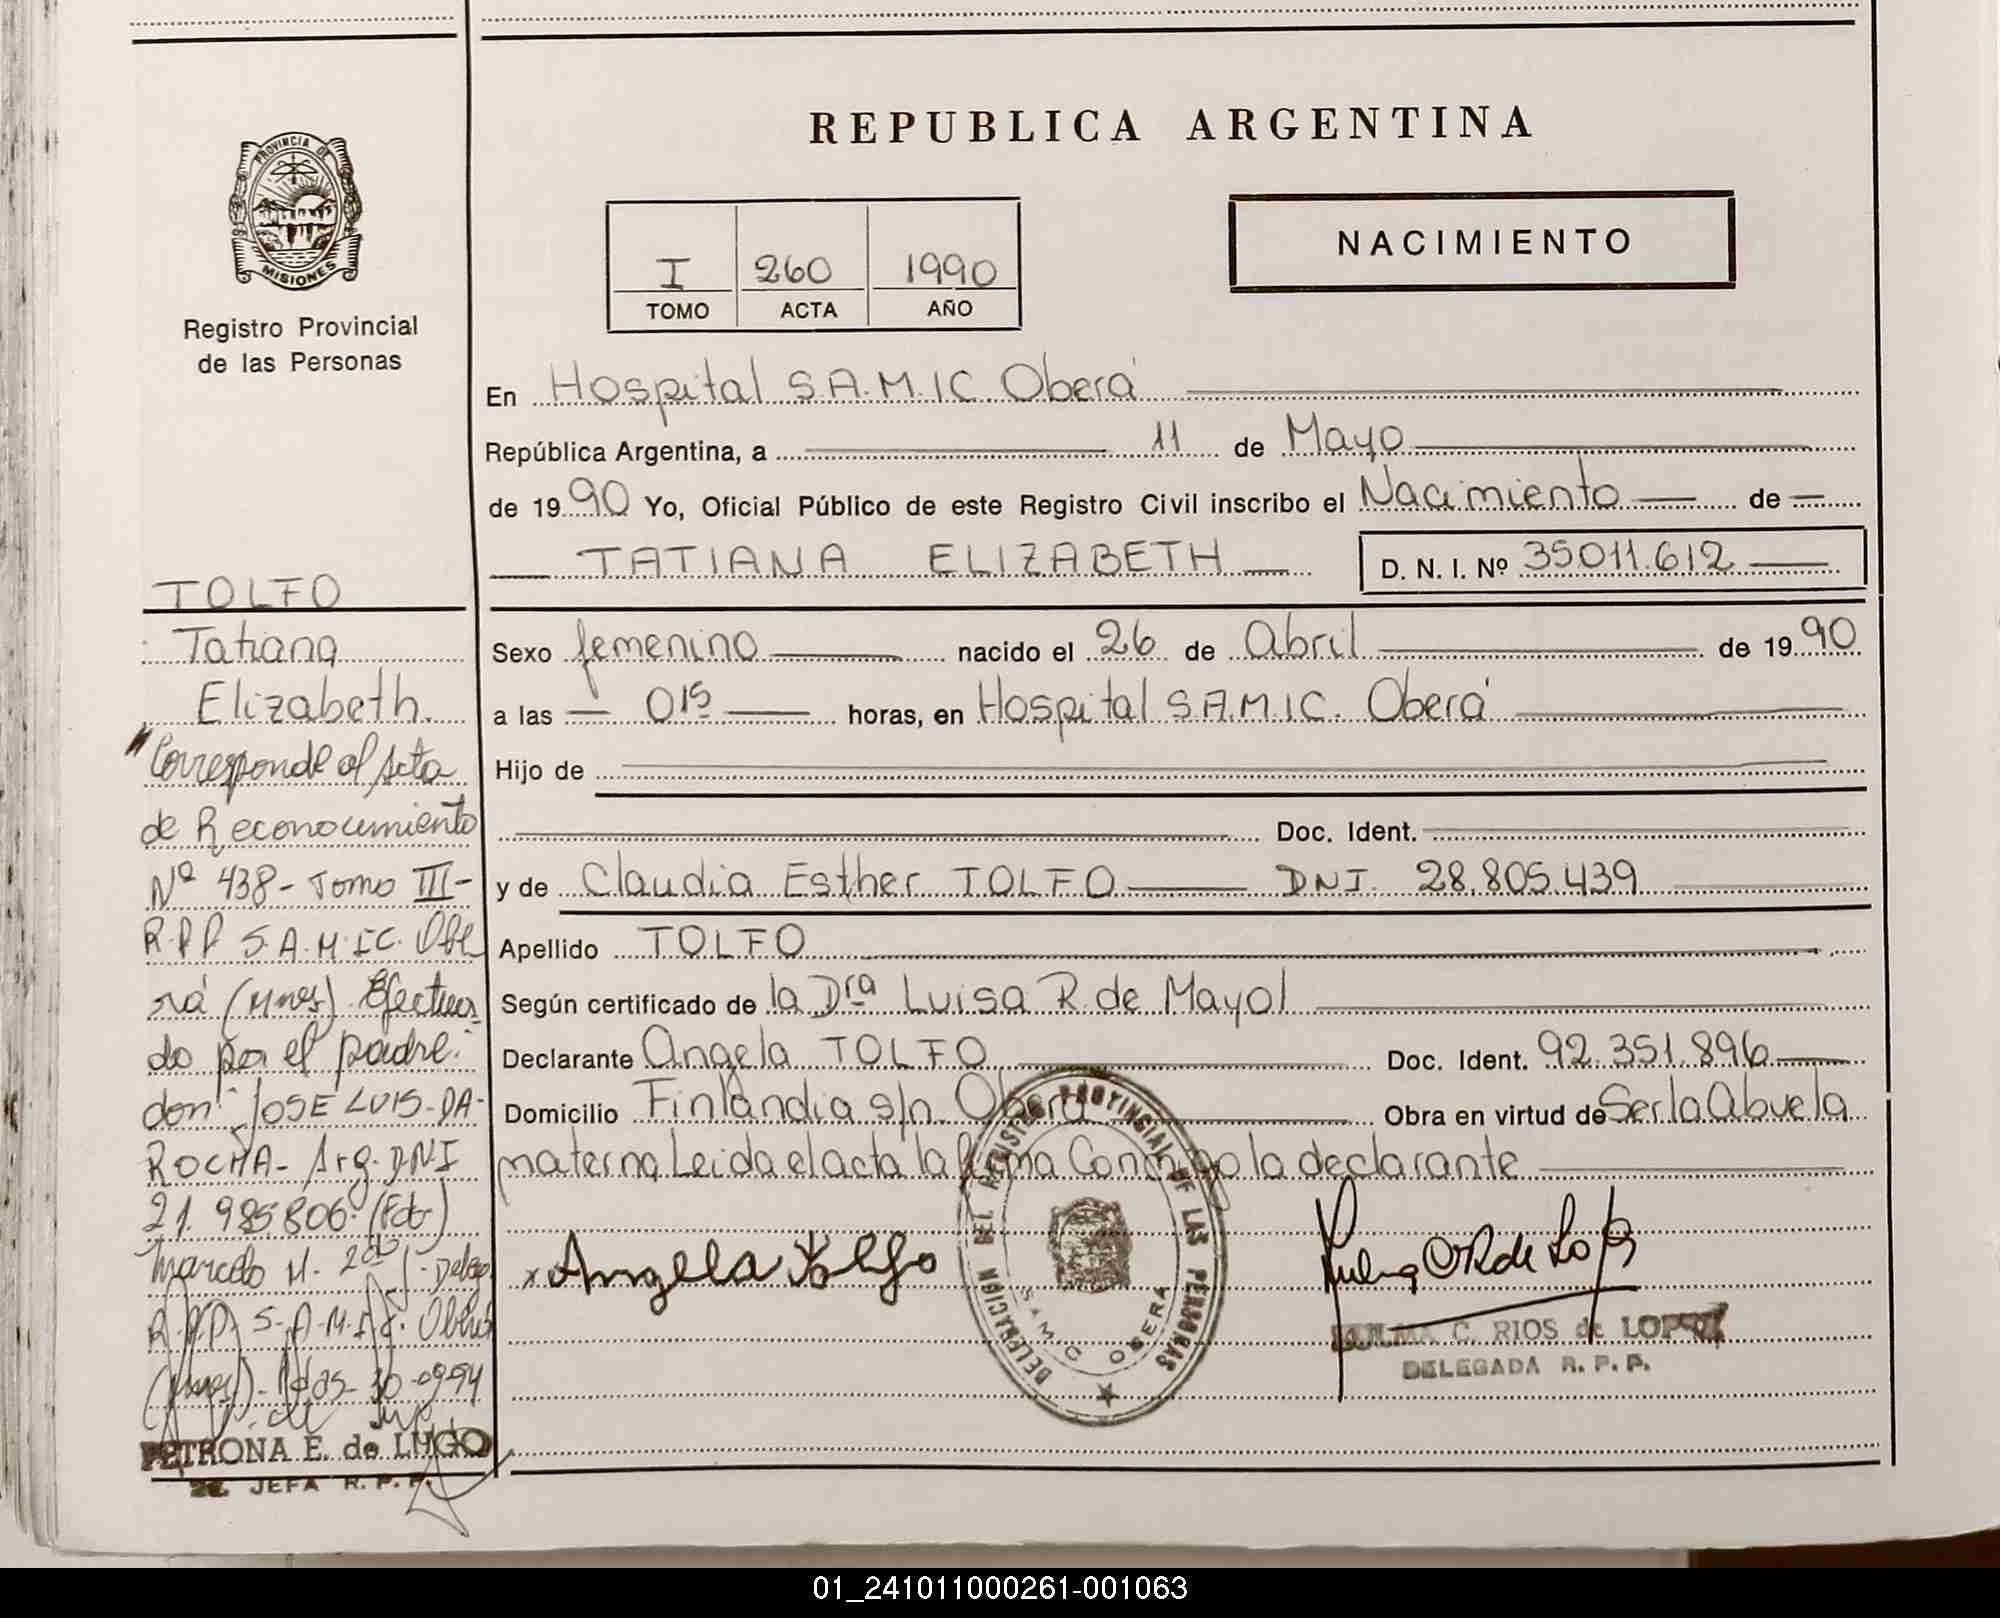 REPUBLICA ARGENTINA
PROVINCIA DE
MISIONES
Registro Provincial
de las Personas
I 260 1990
TOMO ACTA AÑO
NACIMIENTO
En Hospital S.A.M.I.C. Oberá
República Argentina, a 11 de Mayo
de 1990 Yo, Oficial Público de este Registro Civil inscribo el Nacimiento de
TATIANA ELIZABETH D. N. I. Nº 35011.612
Sexo femenino nacido el 26 de Abril de 1990
a las 015 horas, en Hospital S.A.M.I.C. Oberá
Hijo de
Doc. Ident.
y de Claudia Esther TOLFO DNI. 28.805.439
Apellido TOLFO
Según certificado de la Dra Luisa R. de Mayol
Declarante Angela TOLFO Doc. Ident. 92.351.896
Domicilio Finlandia s/n Oberá Obra en virtud de Ser la Abuela
materna Leida el acta la firma Conmigo la declarante
Angela Tolfo
DELEGACION DEL REGISTRO PROVINCIAL DE LAS PERSONAS
S.A.M.I.C. OBERA
ZULMA C. RIOS de LOPEZ
DELEGADA R. P. P.
TOLFO
Tatiana
Elizabeth.
"Corresponde al Acta
de Reconocimiento
Nº 438- Tomo III-
R.P.P S.A.M.I.C. Obe
rá (Mnes) Efectua
do por el padre:
don: JOSE LUIS-DA-
ROCHA- Arg. DNI
21.985.806-(Fdo)
Marcelo M.
R.P.P. S.A.M.I.C. Oberá
(Mnes)- Pdas- 30-09-94
PETRONA E. de LUGO
2a. JEFA R. P. P.
01_241011000261-001063